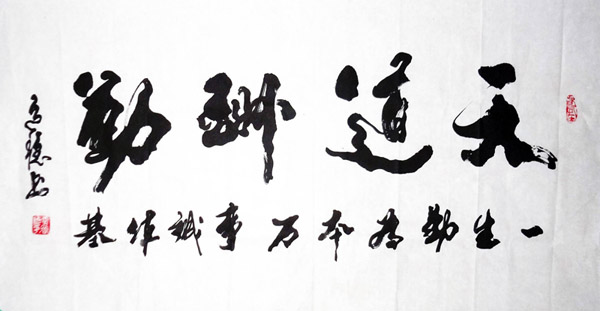 天道酬勤
一生勤为本万事诚作基